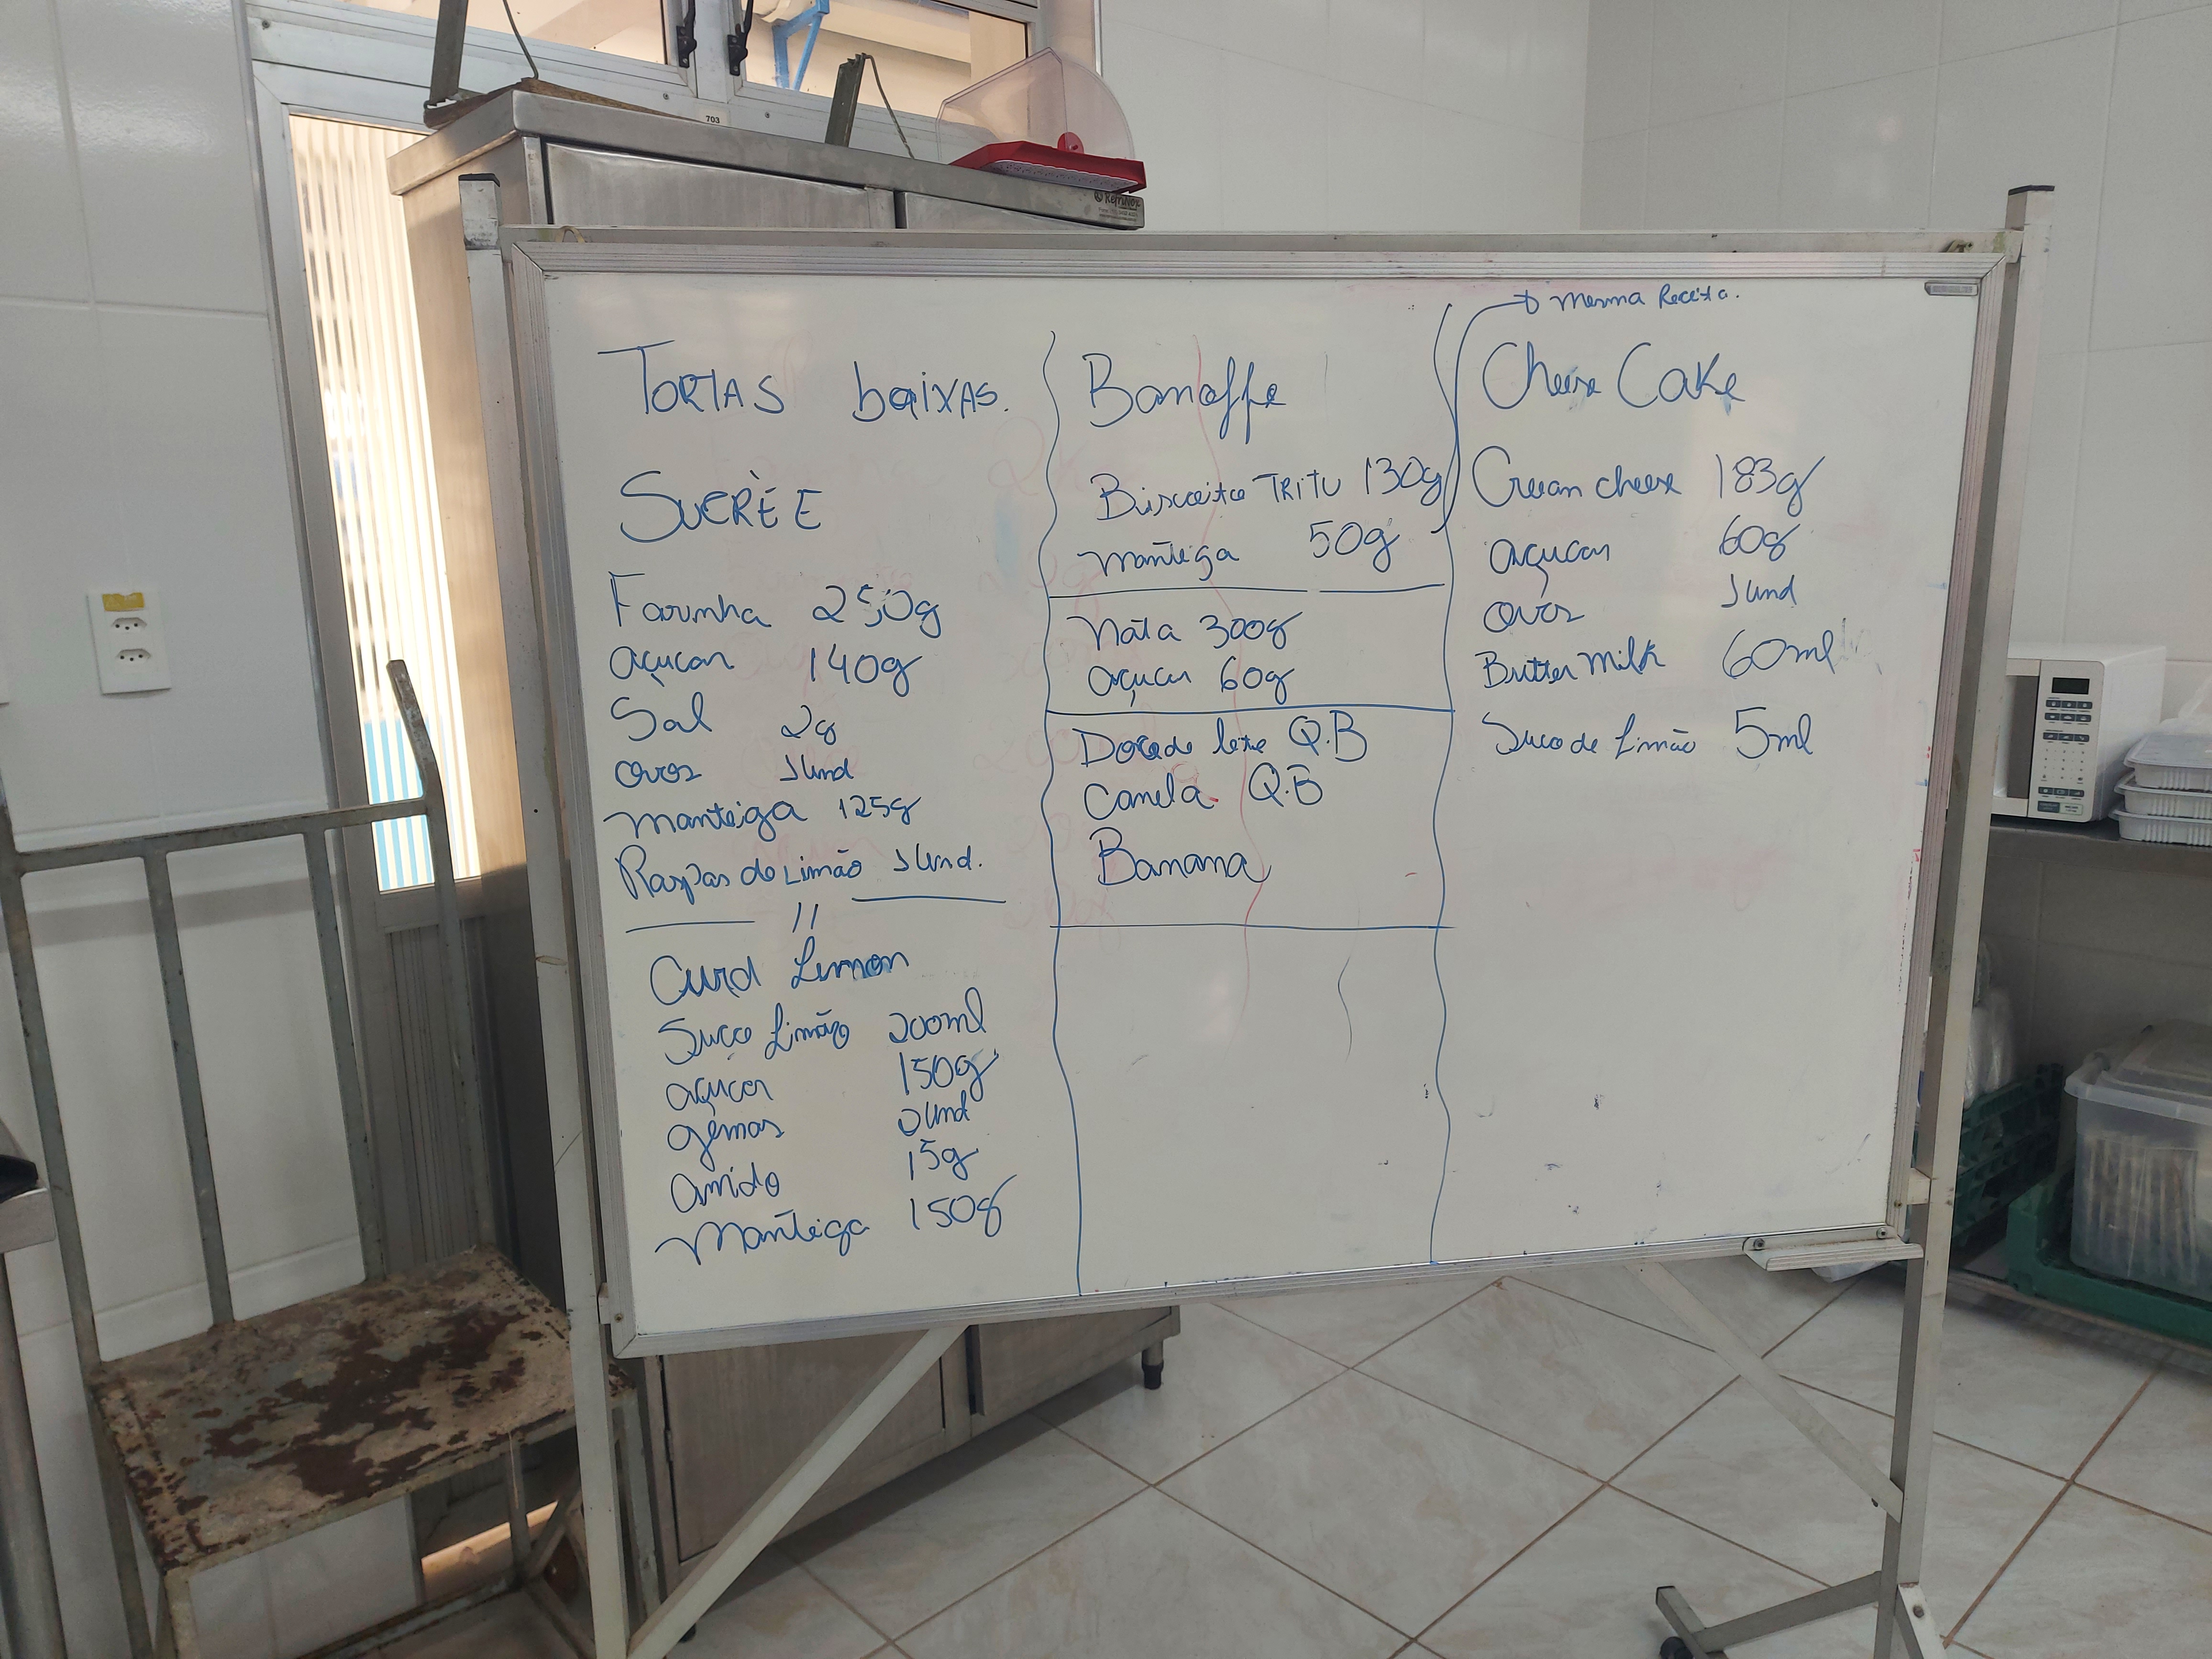 703
RefriNox
TORTAS baixas.
SUCRÈE
Farinha 250g
açucar 140g
Sal 2g
ovos 1und
manteiga 125g
Raspas de Limão 1und.
//
Curd Lemon
Suco Limão 200ml
açucar 150g
gemas und
amido 15g
manteiga 150g
Banoffe
Biscoito TRITU 130g
manteiga 50g
nata 300g
açucar 60g
Doce de leite Q.B
Canela Q.B
Banana
mesma Receita.
Cheese Cake
Cream cheese 183g
açucar 60g
ovos 1und
Butter Milk 60ml
Suco de Limão 5ml